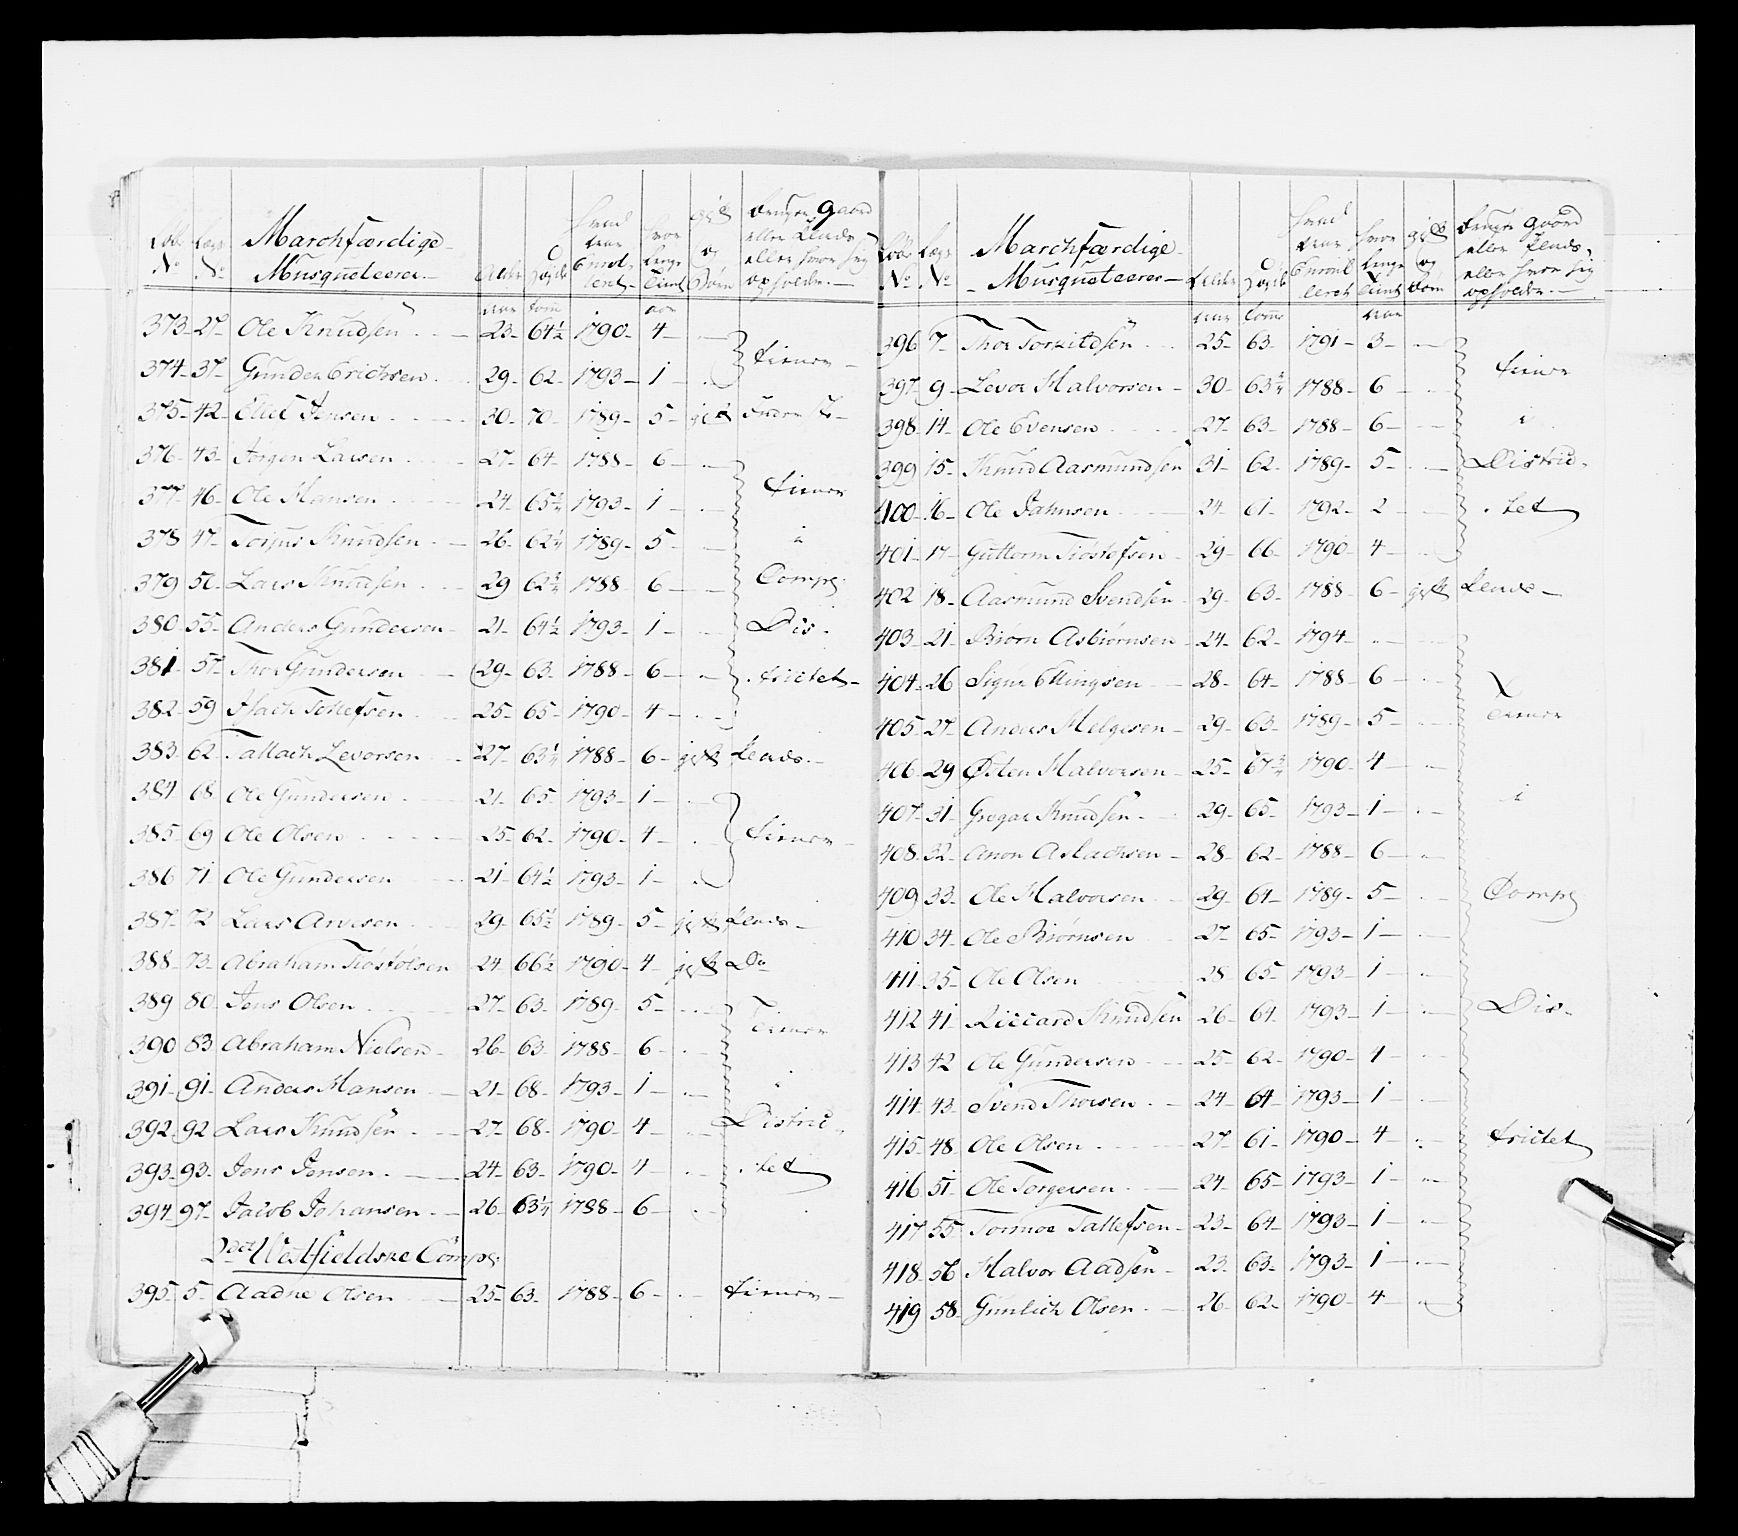 Marchfærdige
Musqueteerer
No No Alder
og Børn
aar
373 27 Ole Knudsen 23 64½ 1790 4
374 37 Gunder Erichsen 29 62 1793 1 tiener
375 42 Eliel Jensen 30 70 1789 5 gift
376 43 Jørgen Larsen 27 64 1788 6
377 46 Ole Hansen 24 65½ 1793 1 tiener
378 47 Torjus Knudsen 26 62¼ 1789 5 i
379 50 Lars Knudsen 29 62¾ 1788 6 Comp:
380 55 Anders Gundersen 21 64½ 1793 1 Dis-
381 57 Thor Gundersen 29 63 1788 6 trictet
382 59 Tollefsen 25 65 1790 4
383 62 Tallach Levorsen 27 63¼ 1788 6 gift
384 68 Ole Gundersen 21 65 1793 1
385 69 Ole Olsen 25 62 1790 4 tiener
386 71 Ole Gundersen 21 64½ 1793 1
387 72 Lars Arvesen 29 65½ 1789 5 gift
388 73 Abraham Tiøstølsen 24 66½ 1790 4 gift Do
389 80 Jens Olsen 27 63 1789 5 Tiener
390 83 Abraham Nielsen 26 63 1788 6
391 91 Anders Hansen 21 68 1793 1 i
392 92 Lars Knudsen 27 68 1790 4 Districk-
393 93 Jens Jensen 24 63 1790 4 tet
394 97 Jacob Johansen 26 63¼ 1788 6
2det Vestfieldske Comp:
395 5 Aadne Olsen 25 63 1788 6 tiener
Marchfærdige
Musqueteerer
No No Alder
og Børn
aar
396 7 Thor Torkildsen 25 63 1791 3 tiener
397 9 Levor Halvorsen 30 63¾ 1788 6
398 14 Ole Evensen 27 63 1788 6 i
399 15 Knud Aasmundsen 31 62 1789 5 Distric-
400 16 Ole Jahnsen 24 61 1792 2 tet
401 17 Guttorm Tiøstefsen 29 66 1790 4
402 18 Aasmund Svendsen 29 63 1788 6 gift
403 21 Biørn Asbiørnsen 24 62 1794
404 26 Ellingsen 28 64 1788 6
405 27 Anders Helgesen 29 63 1789 5 tiener
406 29 Østen Halvorsen 25 67¾ 1790 4
407 31 Gregar Knudsen 29 65 1793 1 i
408 32 Anon Aslachsen 28 62 1788 6
409 33 Ole Halvorsen 29 64 1789 5 Comp:
410 34 Ole Biørnsen 27 65 1793 1
411 35 Ole Olsen 28 65 1793 1
412 41 Riccard Knudsen 26 64 1793 1 Dis-
413 42 Ole Gundersen 25 62 1790 4
414 43 Svend Thorsen 24 64 1793 1
415 48 Ole Olsen 27 61 1790 4 trictet
416 51 Ole Torgersen 24 65 1793 1
417 55 Tormoe Tallefsen 23 64 1793 1
418 56 Halvor Aadsen 23 63 1793 1
419 58 Gunlich Olsen 26 62 1790 4